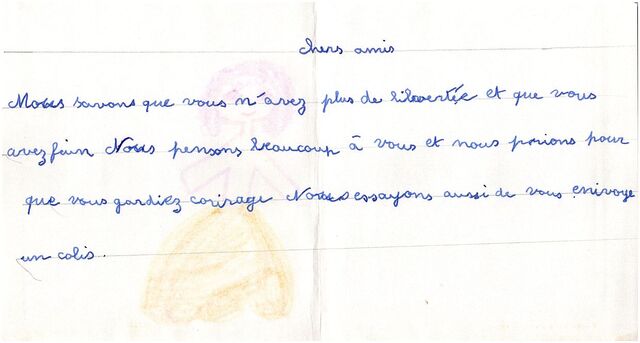 chers amis
Nous savons que vous n'avez plus de libvertée et que vous
avez fain Nous pensons beaucoup à vous et nous prions pour
que vous gardiez courage Nous essayons aussi de vous envoye
un colis.